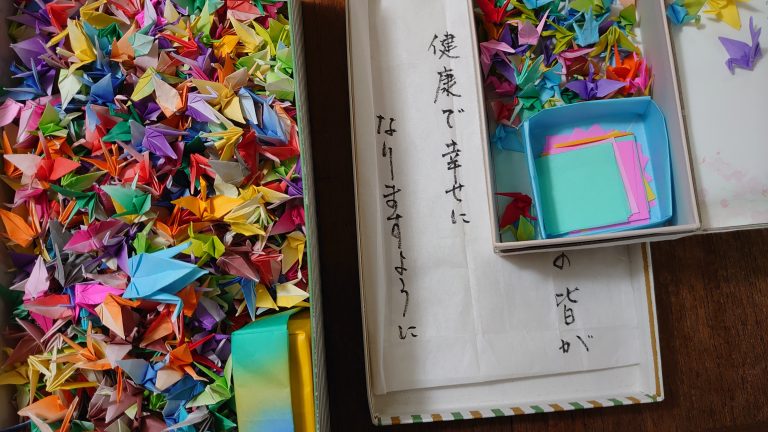 の皆が
健康で幸せに
なりますように